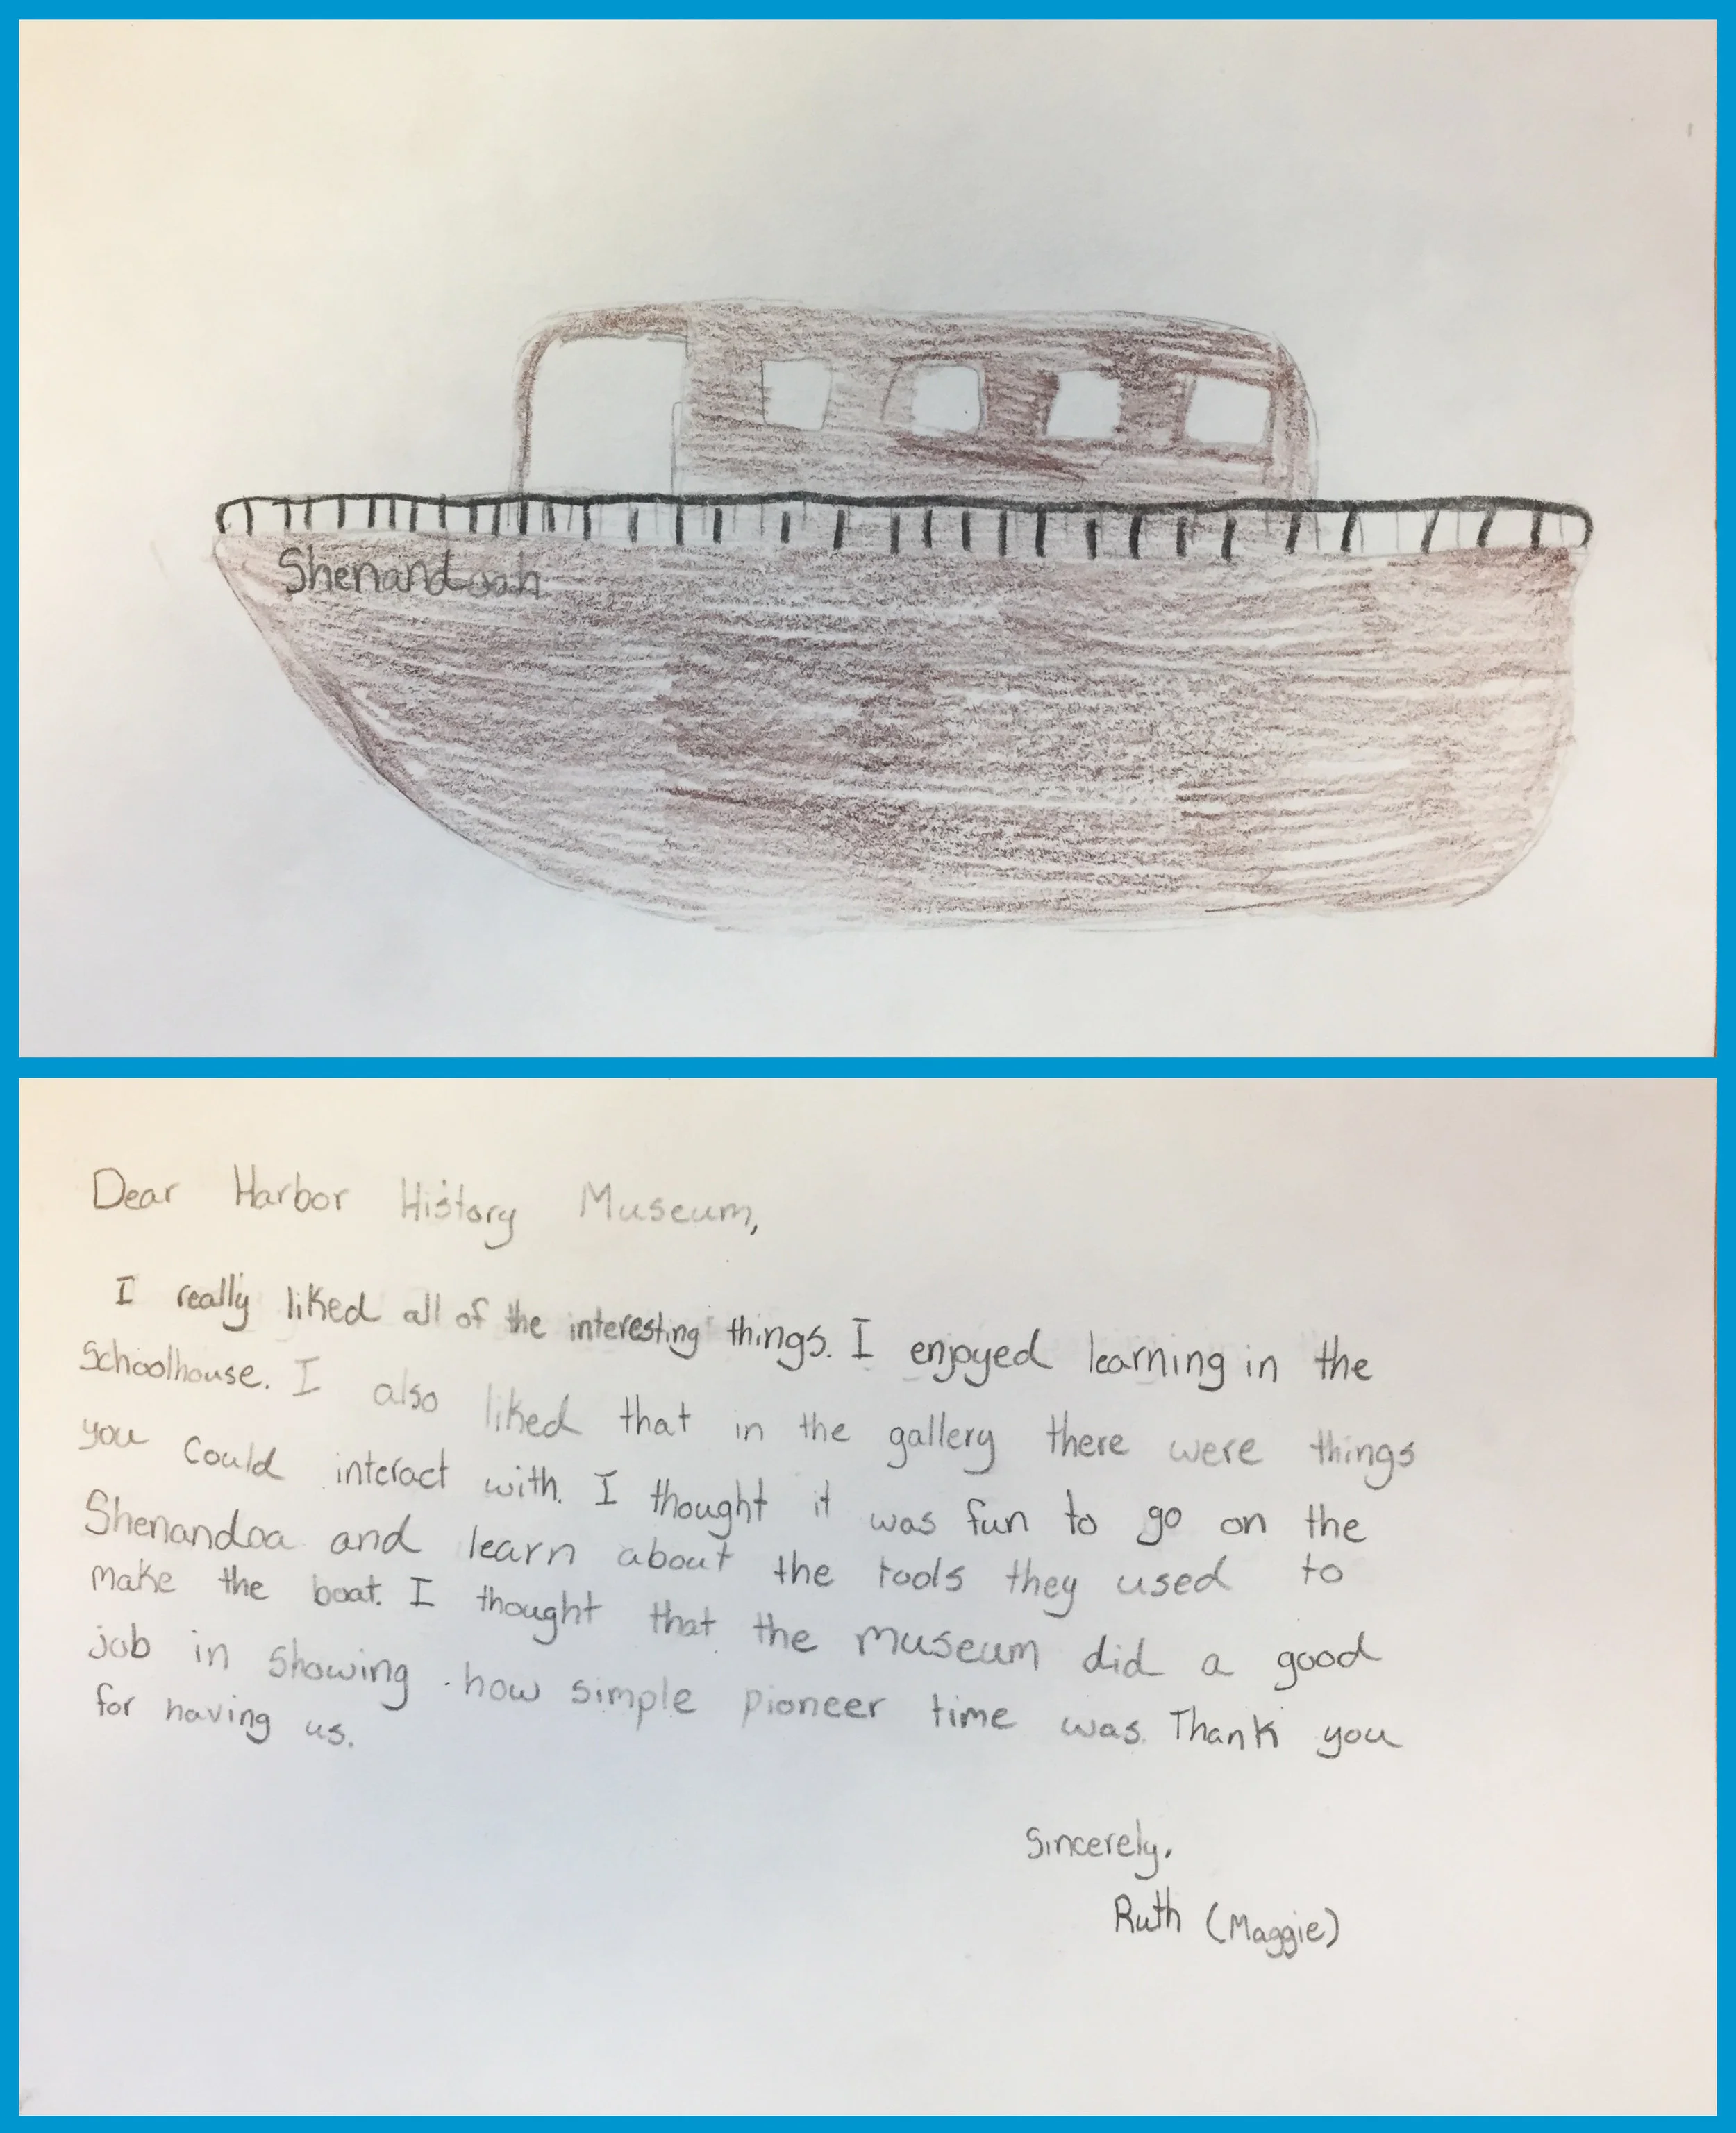 Shenandoah
Dear Harbor History Museum,
I really liked all of the interesting things. I enjoyed learning in the
Schoolhouse. I also liked that in the gallery there were things
you could interact with. I thought it was fun to go on the
Shenandoa and learn about the tools they used to
make the boat. I thought that the museum did a good
job in showing how simple pioneer time was. Thank you
for having us.
Sincerely,
Ruth (Maggie)